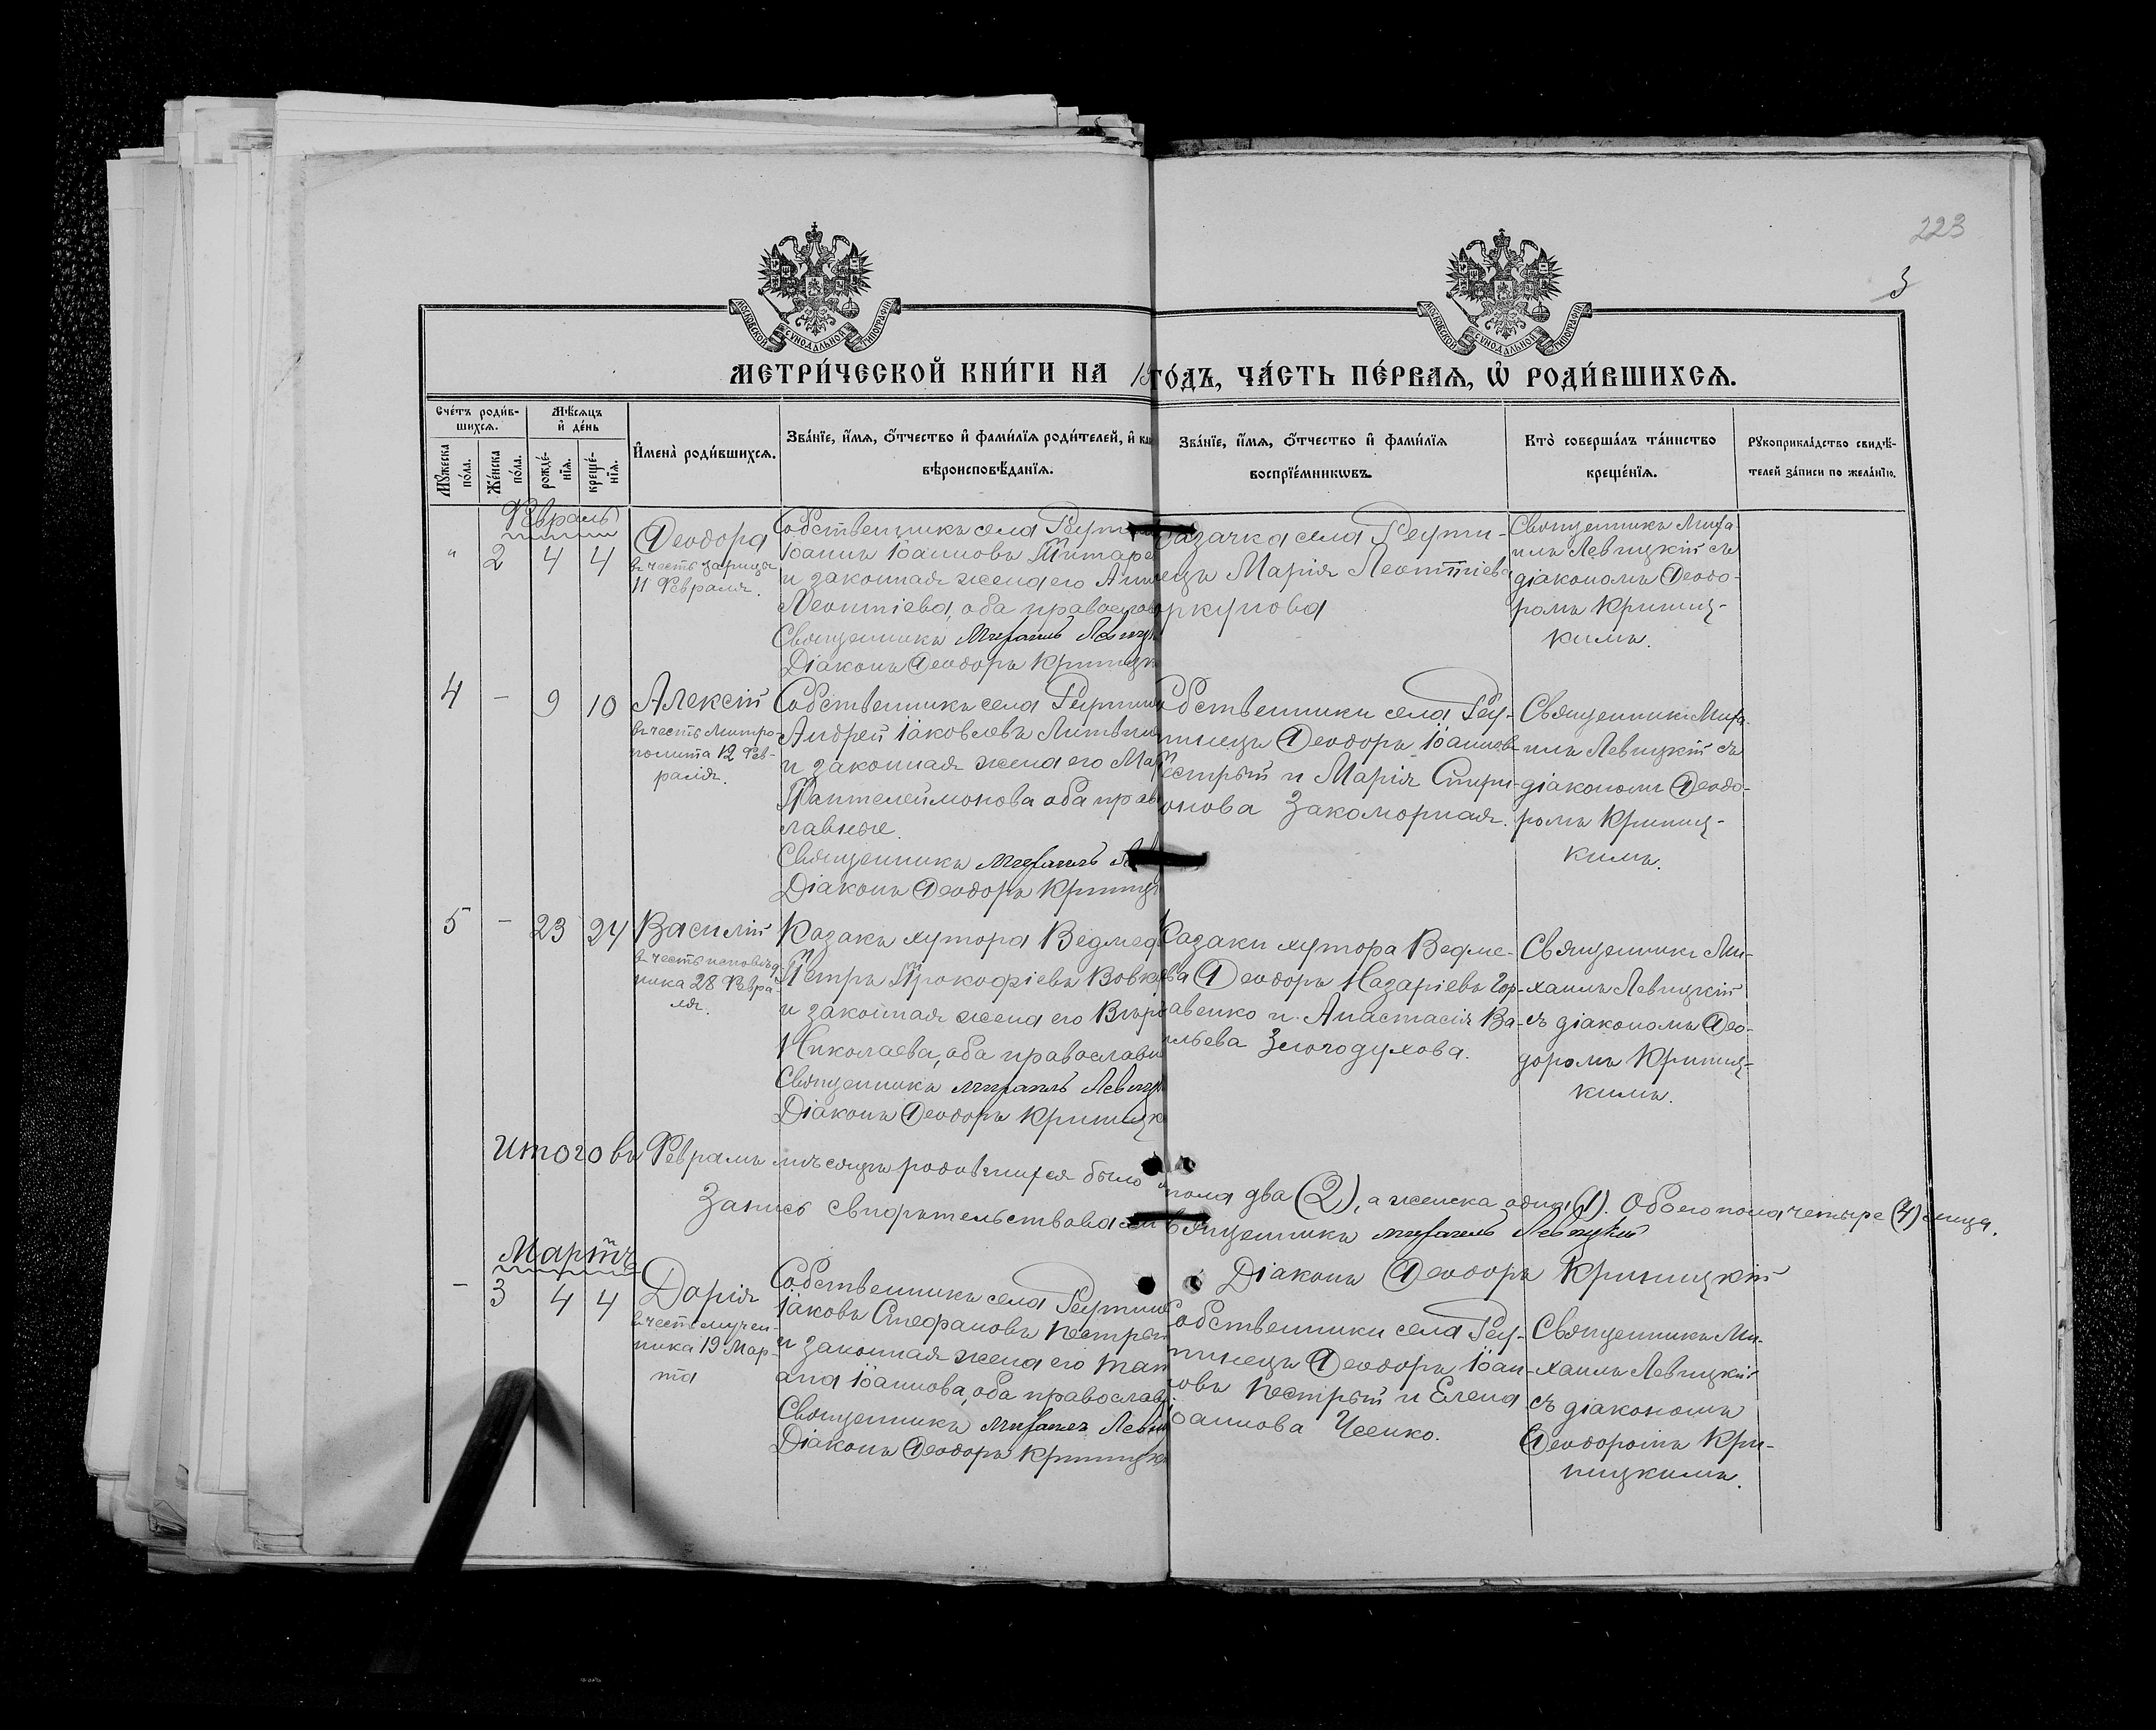 223
3
МОСКОВСКОЙ СѴНОДАЛЬНОЙ ТИПОГРАФІИ
МОСКОВСКОЙ СѴНОДАЛЬНОЙ ТИПОГРАФІИ
МЕТРИ́ЧЕСКОЙ КНИ́ГИ НА
ГО́ДЪ, ЧА́СТЬ ПЕ́РВАѦ, Ѡ҆ РОДИ́ВШИХСѦ.
Сче́тъ роди́в-
шихсѧ.
Мѣ́сѧцъ
и҆ де́нь
Мꙋ́жеска
по́ла.
Же́нска
по́ла.
рожде́-
нїѧ.
креще́-
нїѧ.
И҆мена̀ роди́вшихсѧ.
Зва́нїе, и҆́мѧ, ѻ҆́тчество и҆ фамилїѧ роди́телей, и҆
вѣроисповѣ́данїѧ.
Зва́нїе, и҆́мѧ, ѻ҆́тчество и҆ фамилїѧ
воспрїе́мникѡвъ.
Кто̀ соверша́лъ та́инство
креще́нїѧ.
Рꙋкоприкла́дство свидѣ́-
телей за́писи по жела́нїю.
Февраль
" 2 4 4
Ѳеодора
въ честь царицы
11 Февраля.
Собственникъ села
Іоаннъ Іоанновъ
и законная жена его
Леонтіева, оба
Священникъ Михаилъ
Діаконъ Ѳеодоръ
Казачка села Реути-
нецъ Марія Леонтіева
Священникъ Миха-
илъ Левицкій съ
діакономъ Ѳеодо-
ромъ Криниц-
кимъ.
4 – 9 10
Алексій
въ честь Митро-
полита 12 Фев-
раля.
Собственникъ села
Андрей Іаковлевъ
и законная жена его
Пантелеймонова оба
славные.
Священникъ Михаилъ
Діаконъ Ѳеодоръ
Собственники села Реу-
тинецъ Ѳеодоръ Іоанновъ
Пестрый и Марія Спири-
онова Закоморная.
Священникъ Миха-
илъ Левицкій съ
діакономъ Ѳеодо-
ромъ Криниц-
кимъ.
5 – 23 24
Василій
въ честь исповѣд-
ника 28 Февра-
ля.
Казакъ хутора
Петръ Прокофіевъ
и законная жена его
Николаева, оба
Священникъ Михаилъ
Діаконъ Ѳеодоръ
Казаки хутора Ведме-
Ѳеодоръ Назаріевъ Гор-
авенко и Анастасія Ва-
ильева
Священникъ Ми-
хаилъ Левицкій
съ діакономъ Ѳео-
доромъ Криниц-
кимъ.
Итого въ Февралѣ мѣсяцѣ родившихся было
пола два (2), а женска одна (1). Обоего пола четыре (4) лица.
Запись свидѣтельствовали
Священникъ Михаилъ Левицкій
Діаконъ Ѳеодоръ Криницкій
Мартъ
– 3 4 4
Дарія
въ честь мучен-
ника 19 Мар-
та
Собственникъ села
Іаковъ Стефановъ
и законная жена его
Іоаннова, оба
Священникъ Михаилъ
Діаконъ Ѳеодоръ
Собственники села Реу-
тинецъ Ѳеодоръ Іоан-
новъ Пестрый и Елена
Іоаннова
Священникъ Ми-
хаилъ Левицкій
съ діакономъ
Ѳеодоромъ Кри-
ницкимъ.